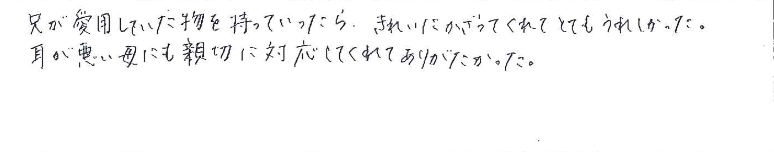 兄が愛用していた物を持っていったら、きれいにかざってくれてとてもうれしかった。
耳が悪い母にも親切に対応してくれてありがたかった。